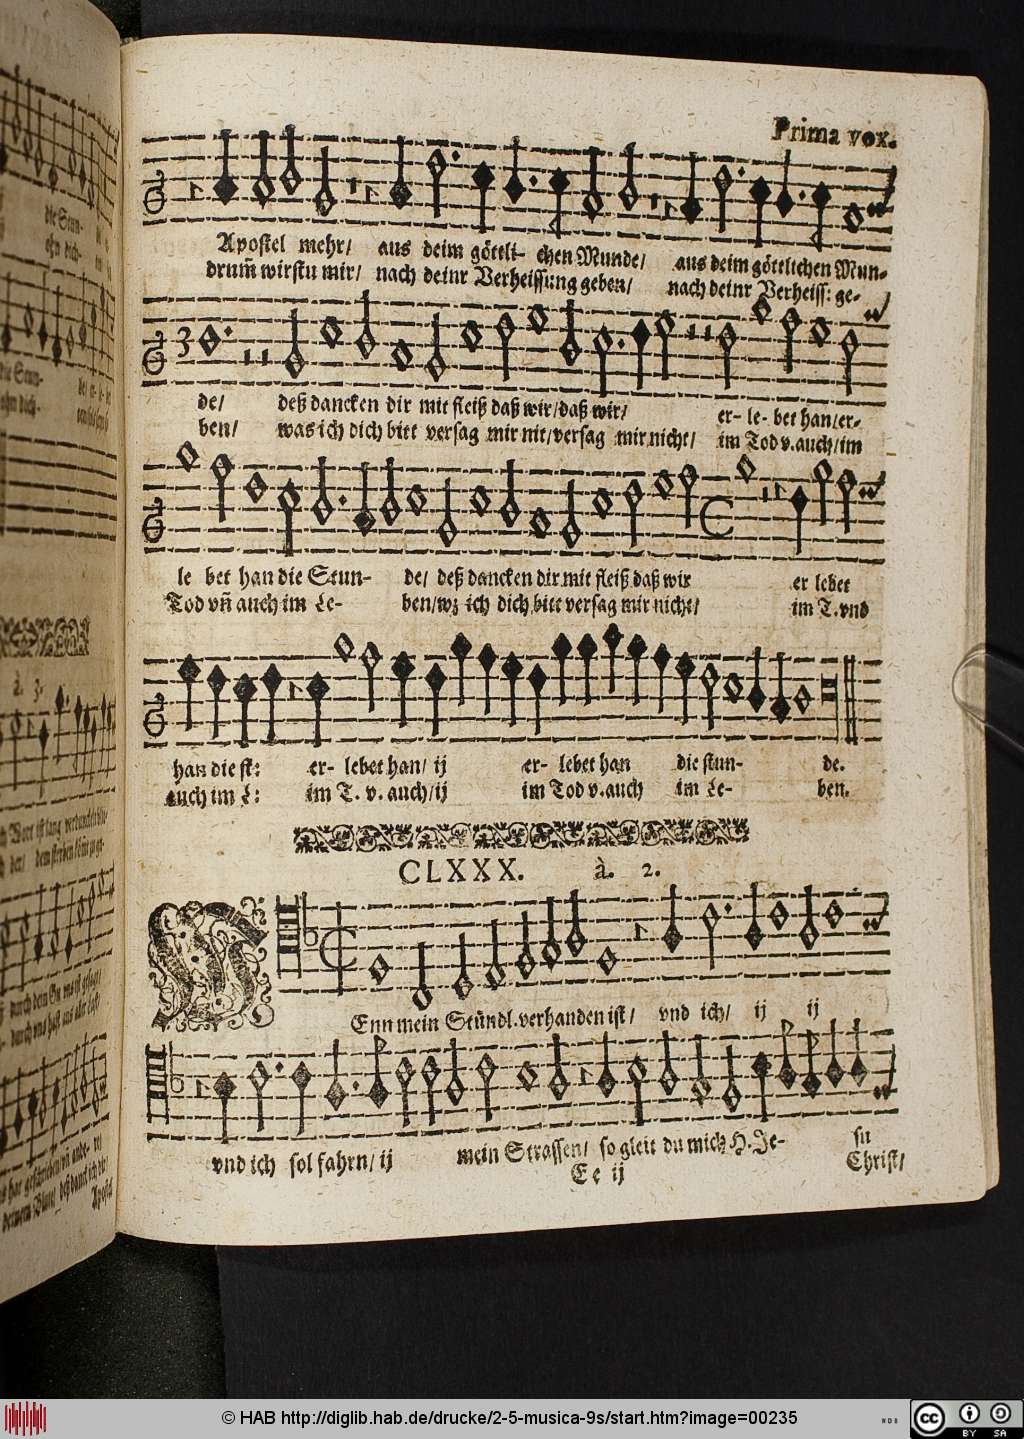 Prima vox.
Apostel mehr/ aus deim göttli- chen Munde/ aus deim göttlichen Mun-
drum̄ wirstu mir/ nach deinr Verheissung geben/ nach deinr Verheiss: ge-
de/ deß dancken dir mit fleiß daß wir/daß wir/ er- le- bet han/er-
ben/ was ich dich bitt versag mir nit/versag mir nicht/ im Tod v.auch/im
le bet han die Stun- de/ deß dancken dir mit fleiß daß wir er lebet
Tod vñ auch im Le- ben/wz ich dich bitt versag mir nicht/ im T.vnd
han die st: er- lebet han/ ij er- lebet han die stun- de.
auch im L: im T. v. auch/ij im Tod v.auch im Le- ben.
CLXXX. à. 2.
WEnn mein Stündl.verhanden ist/ vnd ich/ ij ij
vnd ich sol fahrn/ ij mein Strassen/ so gleit du mich H.Je- su
Christ/
Ee ij
die Stun-
à. 3.
Apostel
© HAB http://diglib.hab.de/drucke/2-5-musica-9s/start.htm?image=00235
cc BY SA